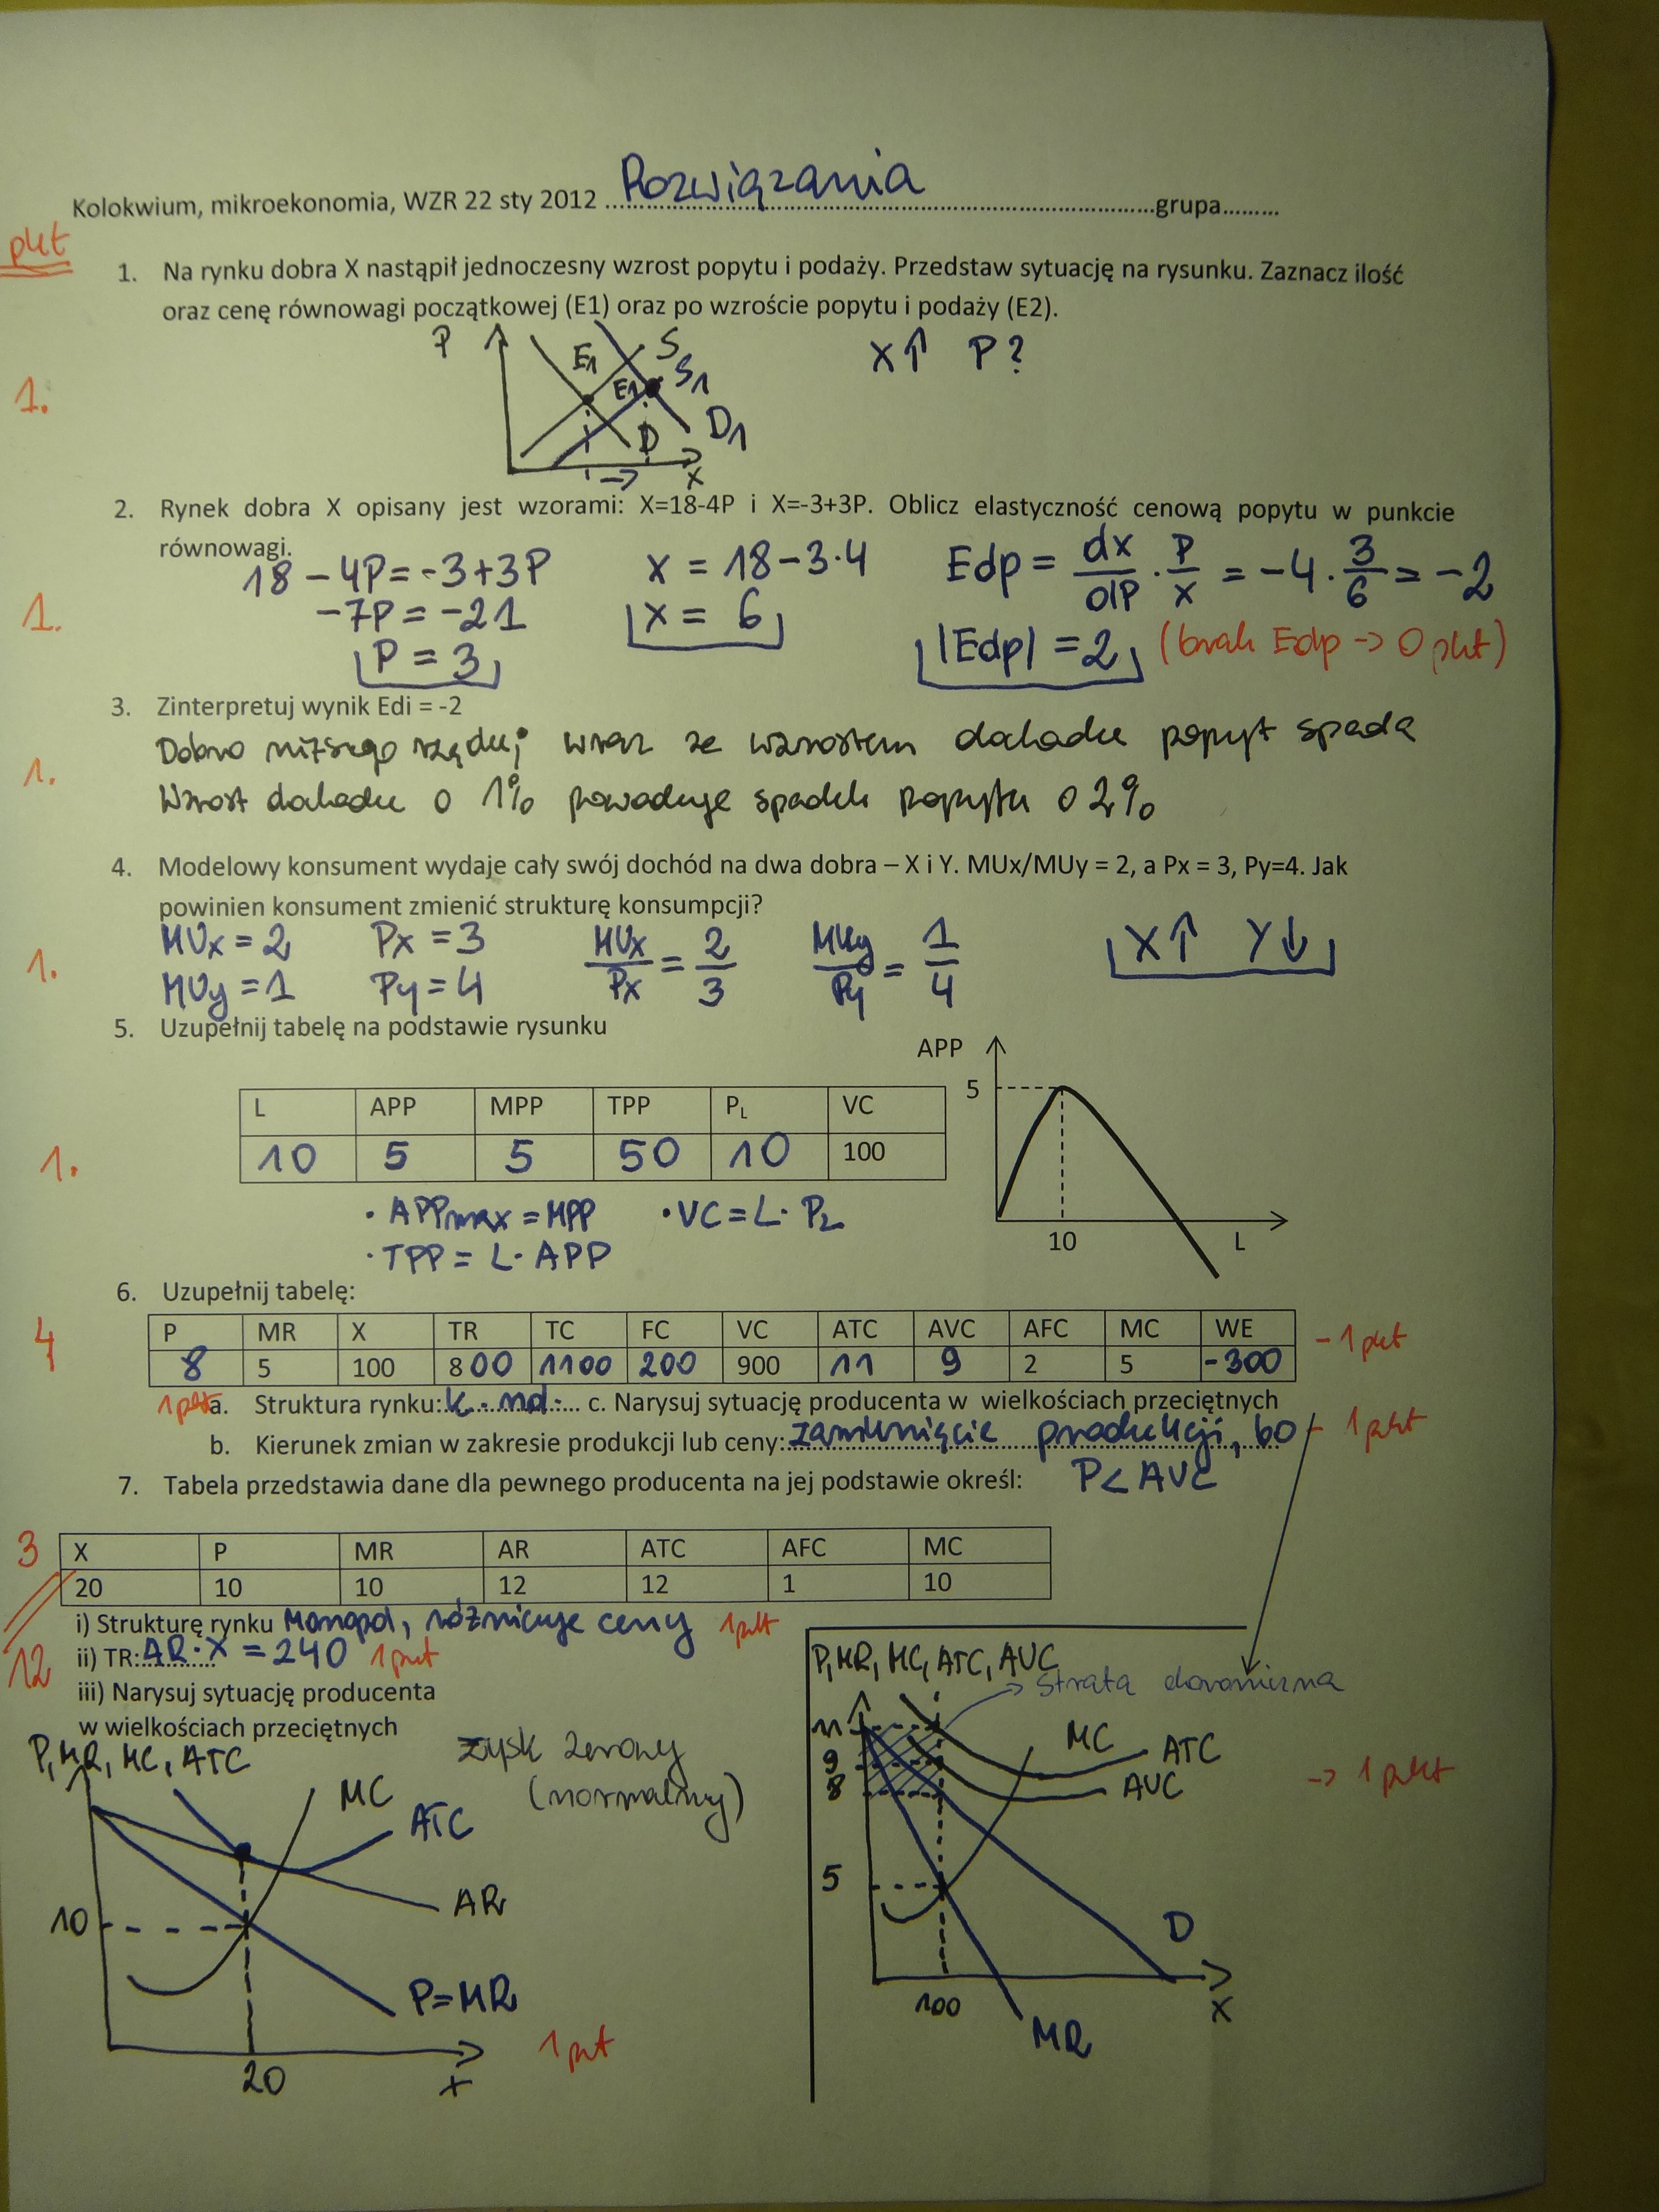 Kolokwium, mikroekonomia, WZR 22 sty 2012 Rozwiązania grupa.........
pkt
1. Na rynku dobra X nastąpił jednoczesny wzrost popytu i podaży. Przedstaw sytuację na rysunku. Zaznacz ilość
oraz cenę równowagi początkowej (E1) oraz po wzroście popytu i podaży (E2).
P E1 S X↑ P?
1. E1 S1
D D1
→ X
2. Rynek dobra X opisany jest wzorami: X=18-4P i X=-3+3P. Oblicz elastyczność cenową popytu w punkcie
równowagi.
18 - 4P = -3+3P X = 18-3·4 Edp = dx/dP · P/X = -4 · 3/6 = -2
1. -7P = -21 X = 6
P = 3 |Edp| = 2 (brak Edp -> 0 pkt)
3. Zinterpretuj wynik Edi = -2
Dobro niższego rzędu; wraz ze wzrostem dochodu popyt spada
1. Wzrost dochodu o 1% powoduje spadek popytu o 2%
4. Modelowy konsument wydaje cały swój dochód na dwa dobra – X i Y. MUx/MUy = 2, a Px = 3, Py=4. Jak
powinien konsument zmienić strukturę konsumpcji?
1. MUx = 2 Px = 3 MUx/Px = 2/3 MUy/Py = 1/4 X↑ Y↓
MUy = 1 Py = 4
5. Uzupełnij tabelę na podstawie rysunku
APP
5
L APP MPP TPP PL VC
1. 10 5 5 50 10 100
· APPmax = MPP · VC = L · PL
· TPP = L · APP
10 L
6. Uzupełnij tabelę:
4 P MR X TR TC FC VC ATC AVC AFC MC WE - 1 pkt
8 5 100 800 1100 200 900 11 9 2 5 -300
1 pkt a. Struktura rynku: k. md. c. Narysuj sytuację producenta w wielkościach przeciętnych
b. Kierunek zmian w zakresie produkcji lub ceny: zamknięcie produkcji, bo 1 pkt
P < AVC
7. Tabela przedstawia dane dla pewnego producenta na jej podstawie określ:
3 X P MR AR ATC AFC MC
20 10 10 12 12 1 10
i) Strukturę rynku Monopol, różnicuje ceny 1 pkt
12 ii) TR: AR·X = 240 1 pkt
iii) Narysuj sytuację producenta
w wielkościach przeciętnych
P, MR, MC, ATC
zysk zerowy
(normalny)
MC
ATC
AR
10
P=MR
20 X
1 pkt
P, MR, MC, ATC, AVC
strata ekonomiczna
11
9
8
MC ATC
AVC
-> 1 pkt
5
D
100 X
MR